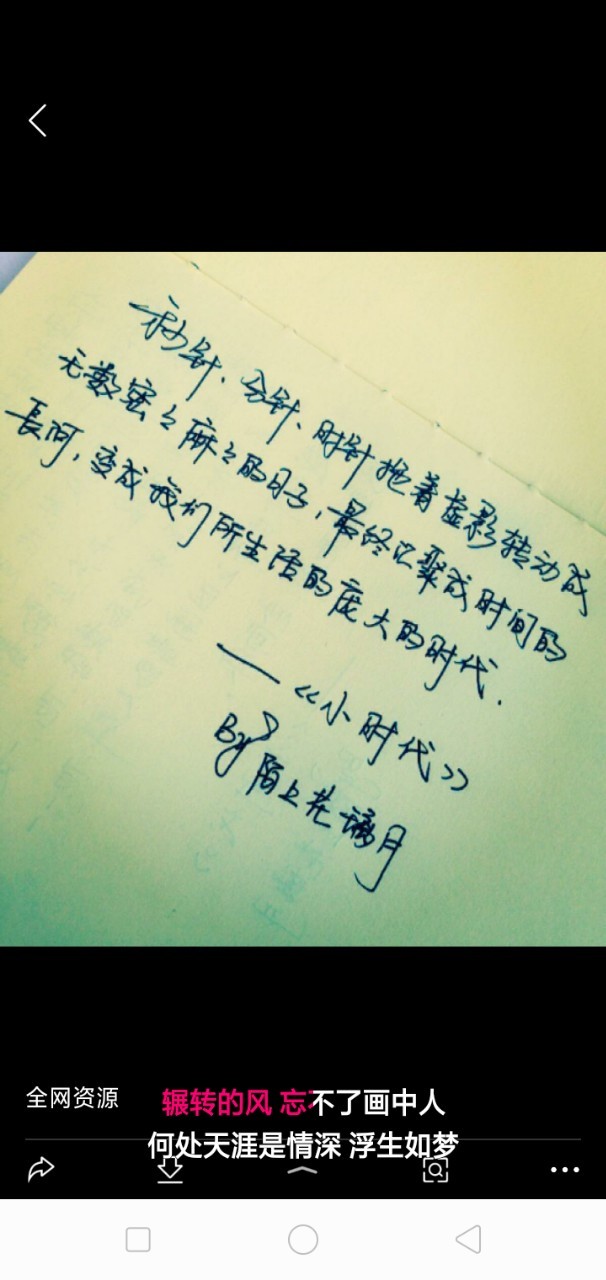 秒针、分针、时针拖着虚影转动成
无数密々麻々的日子，最终汇聚成时间的
長河，变成我们所生活的庞大的时代.
——《小时代》
By 陌上花谢月
全网资源
辗转的风 忘不了画中人
何处天涯是情深 浮生如梦